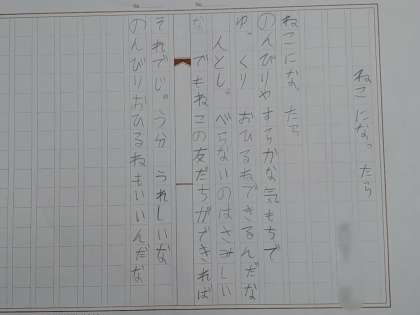 ねこになったら
ねこになったら
のんびりやすらかな気もちで
ゆっくりおひるねできるんだな
人としゃべらないのはさみしい
な でもねこの友だちができれば
それでじゅう分うれしいな
のんびりおひるねもいいんだな